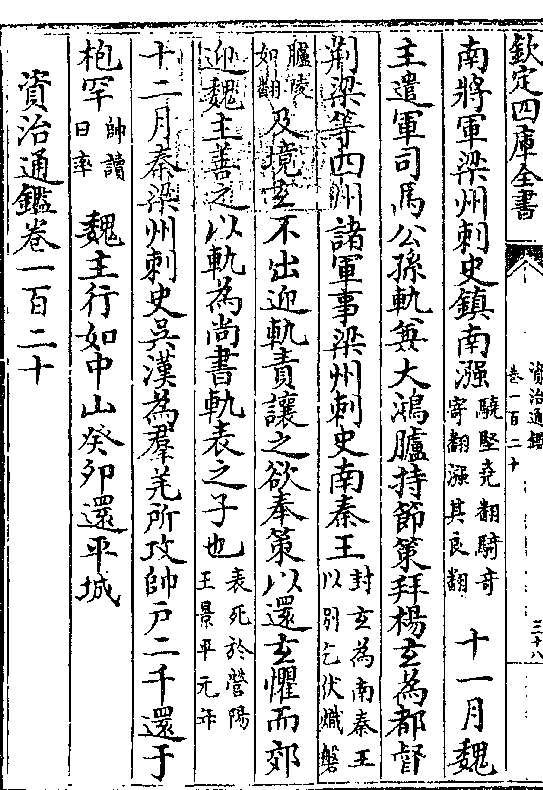 欽定四庫全書
資治通鑑
卷一百二十
三十八
南將軍梁州刺史鎮南漒驍堅堯翻騎奇
寄翻漒其良翻十一月魏
主遣軍司馬公孫軌兼大鴻臚持節策拜楊玄為都督
荆梁等四州諸軍事梁州刺史南秦王封玄為南秦王
以别乞伏熾磐
臚陵
如翻及境玄不出迎軌責讓之欲奉策以還玄懼而郊
迎魏主善之以軌為尚書軌表之子也表死於營陽
王景平元年
十二月秦梁州刺史吳漢為羣羌所攻帥户二千還于
枹罕帥讀
曰率魏主行如中山癸卯還平城
資治通鑑卷一百二十